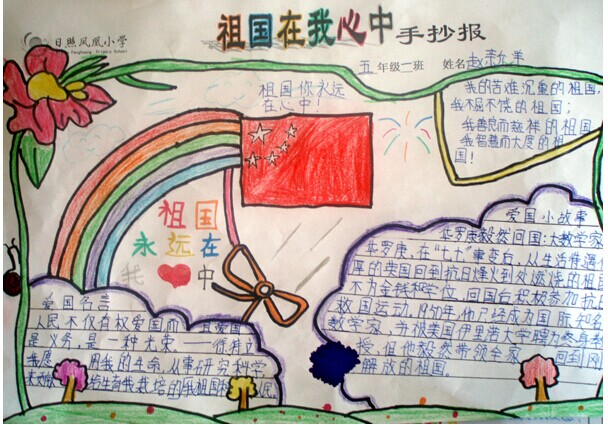 日照凤凰小学
祖国在我心中手抄报
五年级二班 姓名
祖国你永远
在心中！
我的苦难沉重的祖国，
我不屈不饶的祖国；
我善良而慈祥的祖国
我智慧而大度的祖
国！
祖国
永远在
我 中
爱国小故事
华罗庚毅然回国：大数学家
华罗庚，在“七七”事变后，从生活
的英国回到抗日烽火到处燃烧的祖国
不为金钱和学位，回国后积极参加抗日
救国运动，1950年，他已经成为国际知名
数学家，并被美国伊里诺大学聘为终身教
授，但他毅然带领全家 回到刚
解放的祖国。
爱国名言
人民不仅有权爱国而且爱国
是义务，是一种光荣。——徐特立
我愿 用我的生命，从事研究科学
给生育我栽培的我祖国 民。